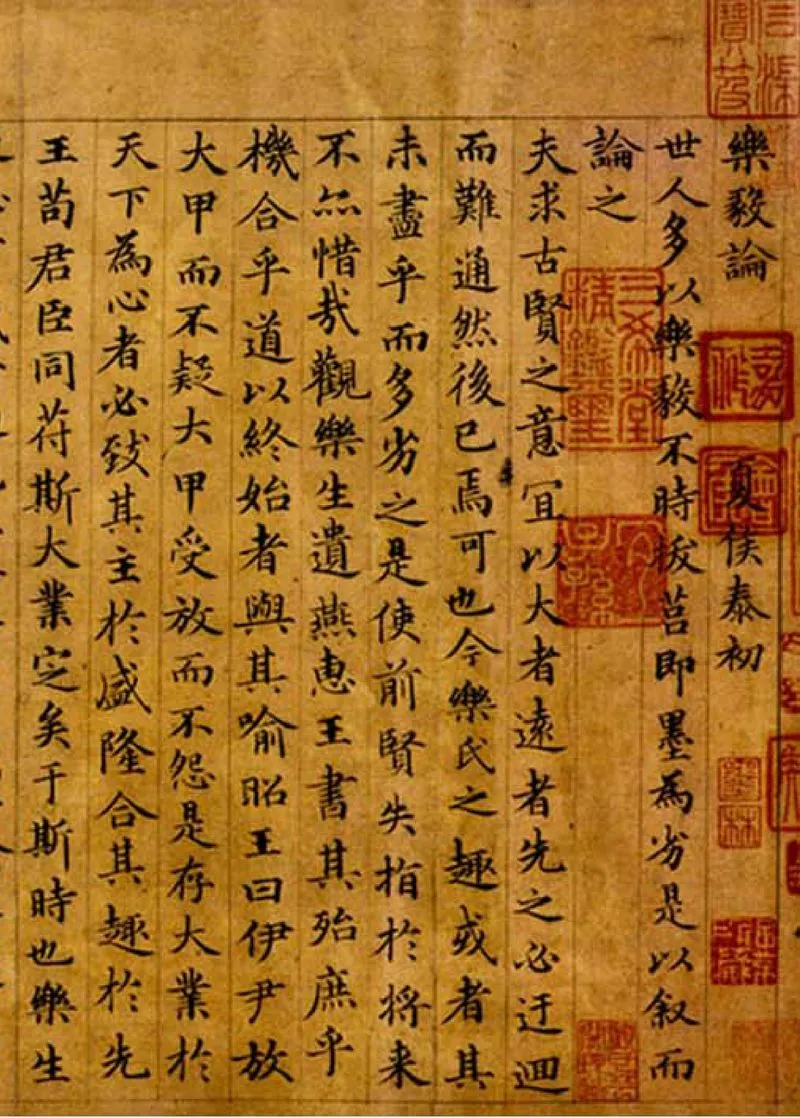 樂毅論 夏侯泰初
世人多以樂毅不時拔莒即墨為劣是以叙而
論之
夫求古賢之意宜以大者遠者先之必迂迴
而難通然後已焉可也今樂氏之趣或者其
未盡乎而多劣之是使前賢失指於将来
不亦惜哉觀樂生遺燕惠王書其殆庶乎
機合乎道以終始者與其喻昭王曰伊尹放
大甲而不疑大甲受放而不怨是存大業於
天下為心者必致其主於盛隆合其趣於先
王苟君臣同苻斯大業定矣于斯時也樂生
三希堂精鑑璽
宜子孫